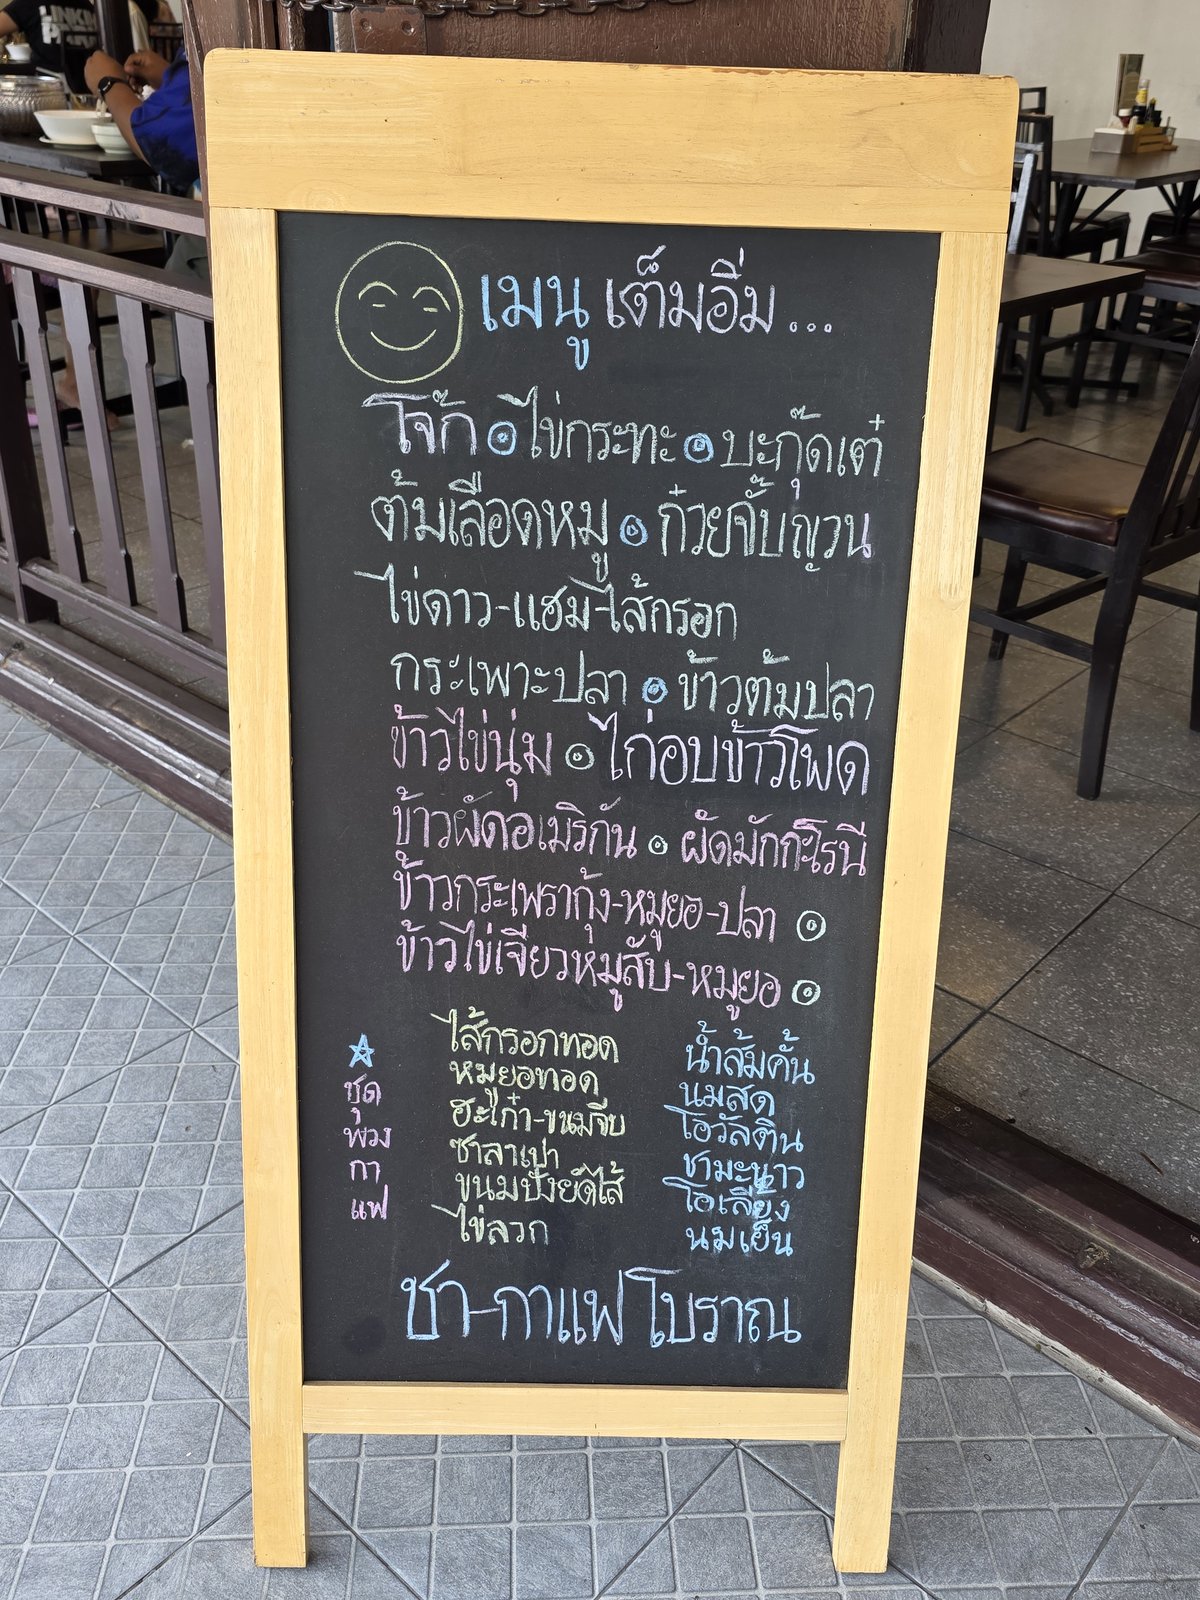 LINKIN
PARK
เมนู เต็มอิ่ม...
โจ๊ก ไข่กระทะ บะกุ๊ดเต๋
ต้มเลือดหมู ก๋วยจั๊บญวน
ไข่ดาว-แฮม-ไส้กรอก
กระเพาะปลา ข้าวต้มปลา
ข้าวไข่นุ่ม ไก่อบข้าวโพด
ข้าวผัดอเมริกัน ผัดมักกะโรนี
ข้าวกระเพรากุ้ง-หมูยอ-ปลา
ข้าวไข่เจียวหมูสับ-หมูยอ
ชุด
พวง
กา
แฟ
ไส้กรอกทอด
หมูยอทอด
ฮะเก๋า-ขนมจีบ
ซาลาเปา
ขนมปังยัดไส้
ไข่ลวก
น้ำส้มคั้น
นมสด
โอวัลติน
ชามะนาว
โอเลี้ยง
นมเย็น
ชา-กาแฟโบราณ